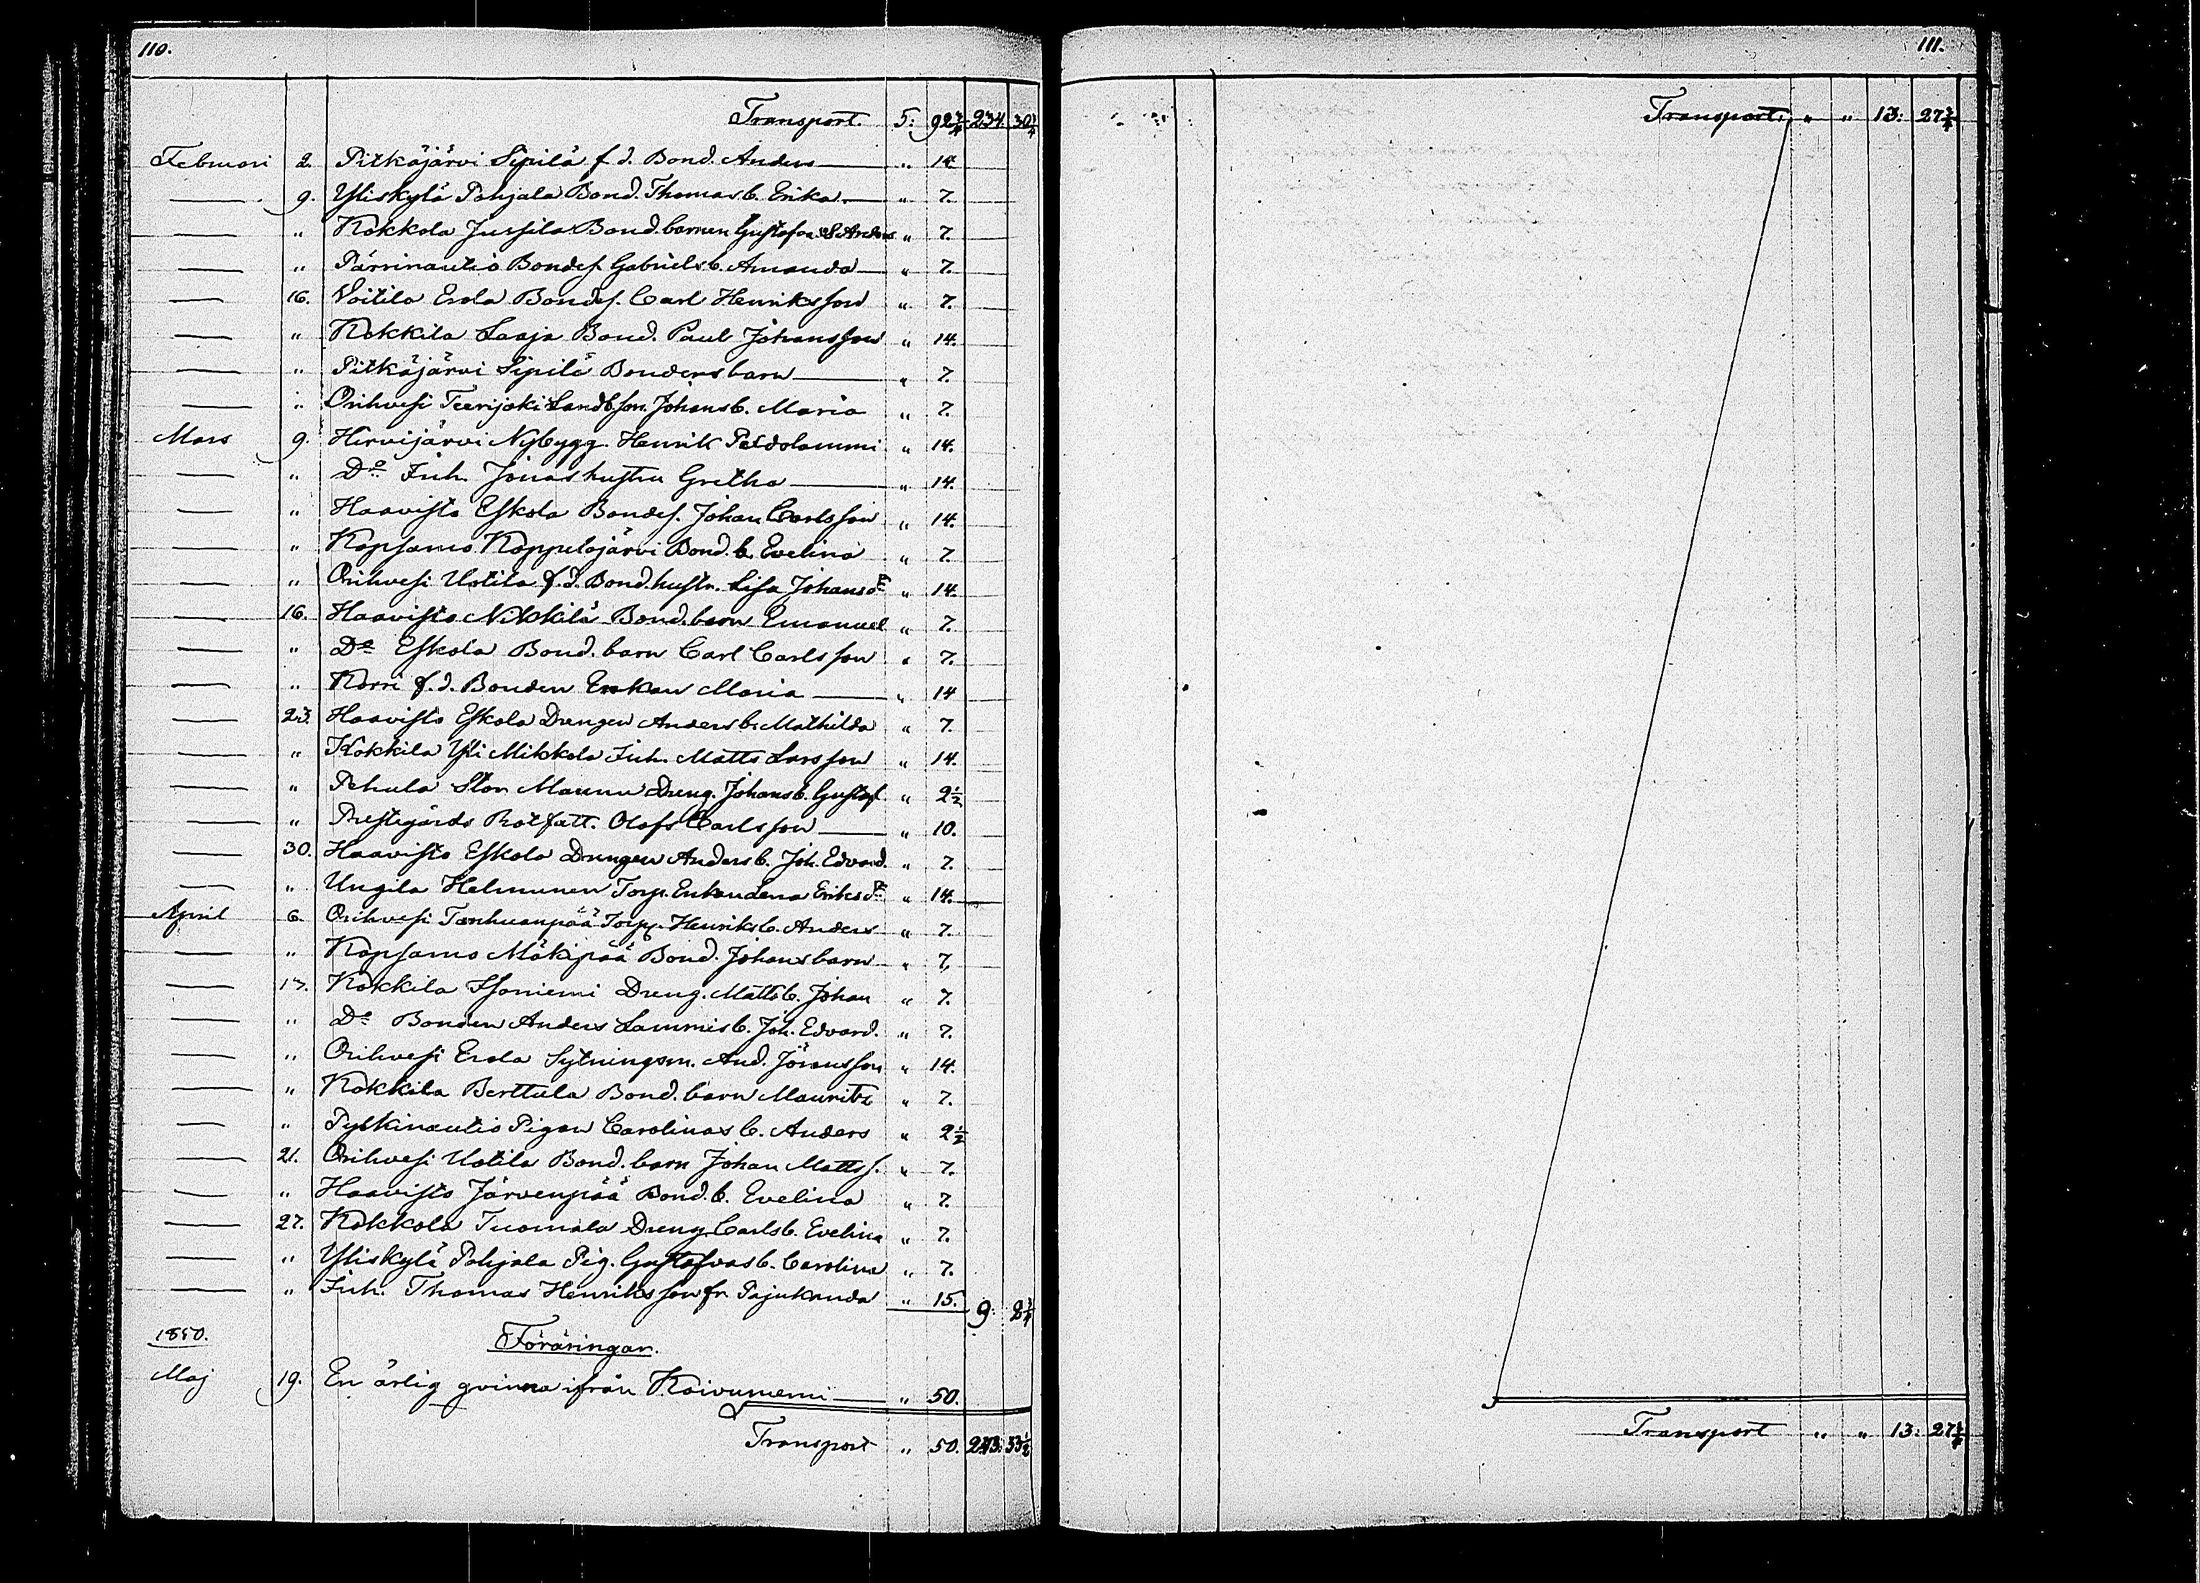 110.
Transport. 5: 92 3/4 234. 30 3/4
Februari 2. Pitkäjärvi Sipilä f.d. Bond. Anders — " 14.
— 9. Yliskylä Pohjala Bond. Thomas b. Erika — " 7.
— " Kokkola Jussila Bond. barnen Gustafva & Anders " 7.
— " Pärrinautio Bondes. Gabriels b. Amanda — " 7.
— 16. Voitila Erola Bondes. Carl Henriksson " 7.
— " Kokkila Laaja Bond. Paul Johansson " 14.
— " Pitkäjärvi Sipilä Bondens barn — " 7.
— " Orihvesi Teerijoki Landb. son. Johans b. Maria " 7.
Mars 9. Hirvijärvi Nybygg. Henrik Peldolammi " 14.
— " D:o Inh. Jonas hustru Gretha — " 14.
— " Haavisto Eskola Bondes. Johan Carlsson " 14.
— " Kopsamo Koppelojärvi Bond. b. Evelina " 7.
— " Orihvesi Uotila f.d. Bond. hustr. Lisa Johansdr " 14.
— 16. Haavisto Nikkilä Bond. barn Emanuel " 7.
— " D:o Eskola Bond. barn Carl Carlsson " 7.
— " Korri f.d. Bonden Enkan Maria — " 14
— 23. Haavisto Eskola Drengen Anders b. Mathilda " 7.
— " Kokkila Yli Mikkola Inh. Matts Larsson " 14.
— " Pehula Stor Maunu Dreng. Johans b. Gustaf " 2 1/2
— " Prestgårds Rotfatt. Olof Carlsson — " 10.
— 30. Haavisto Eskola Drengen Anders b. Joh. Edvard. " 7.
— " Ungila Helmunen Torp. Enkan Lena Eriksdr " 14.
April 6. Orihvesi Tanhuanpää Torp. Henriks b. Anders " 7.
— " Kopsamo Mäkipää Bond. Johans barn — " 7.
— 17. Kokkila Isoniemi Dreng. Matts b. Johan " 7.
— " D:o Bonden Anders Lammis b. Joh. Edvard. " 7.
— " Orihvesi Erola Sytningsm. And. Jöransson " 14.
— " Kokkila Berttula Bond. barn Mauritz " 7.
— " Pytkinautio Pigan Carolinas b. Anders " 2 1/2
— 21. Orihvesi Uotila Bond. barn Johan Matts s. " 7.
— " Haavisto Järvenpää Bond. b. Evelina " 7.
— 27. Kokkola Tuomala Dreng. Carls b. Evelina " 7.
— " Yliskylä Pohjala Pig. Gustafvas b. Carolina " 7.
— " Inh. Thomas Henriksson fr. Pajukanda " 15. 9: 2 3/4
1850. Föräringar.
Maj 19. En ärlig qvinna ifrån Koivuniemi — " 50.
Transport " 50. 243: 33 1/2
111.
Transport. " " 13: 27 3/4
Transport " " 13: 27 3/4